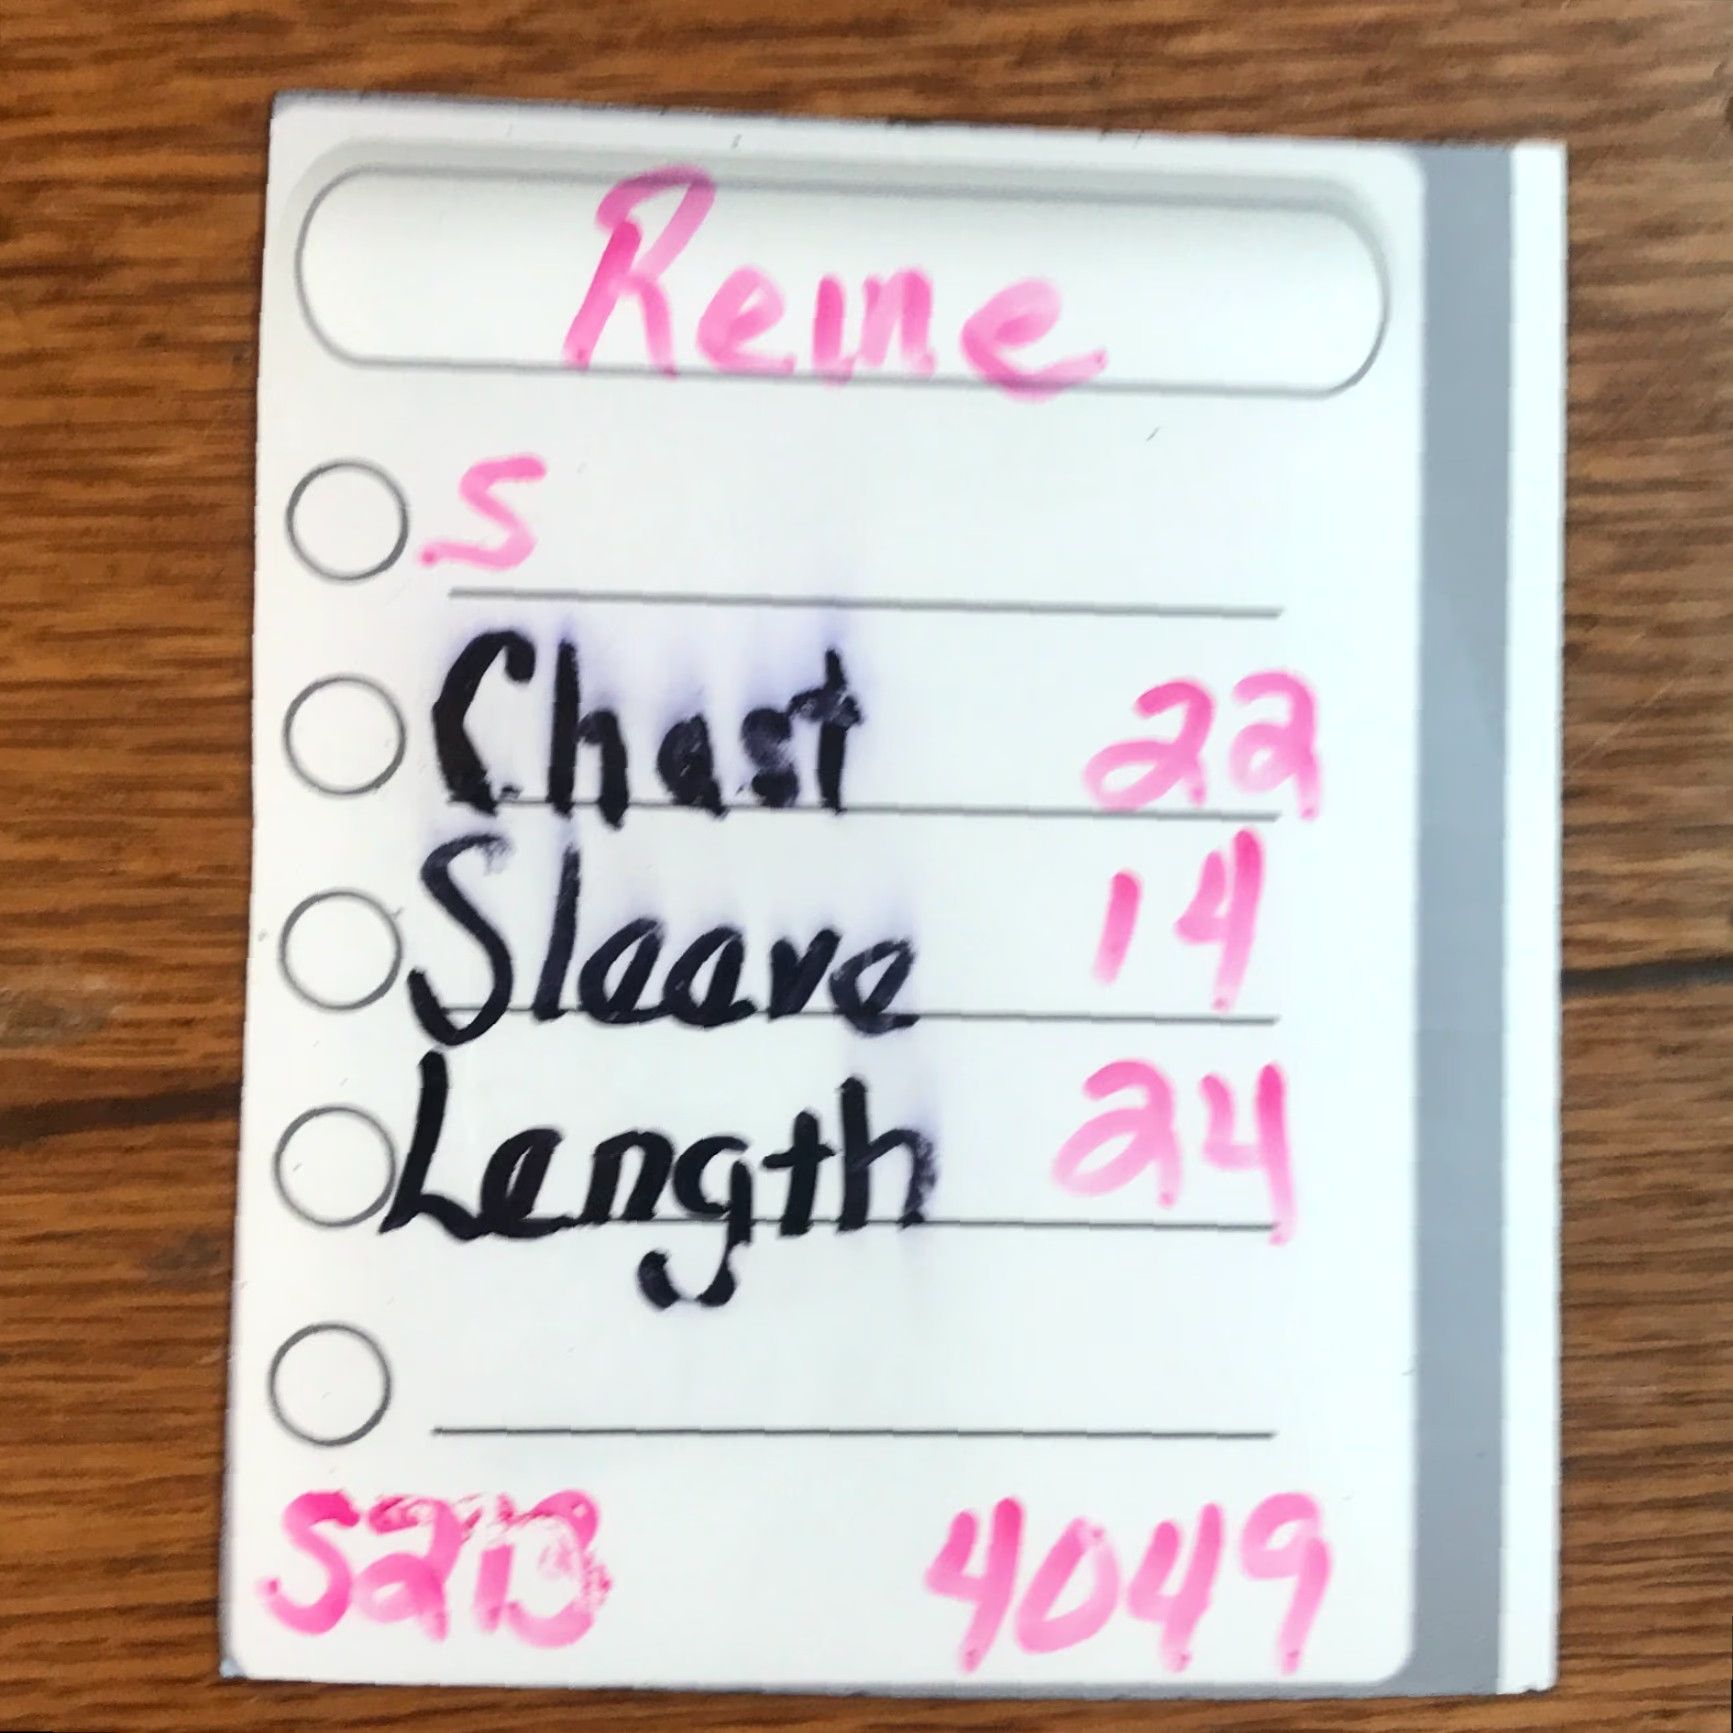 Reine
S
Chest 22
Sleeve 14
Length 24
4049